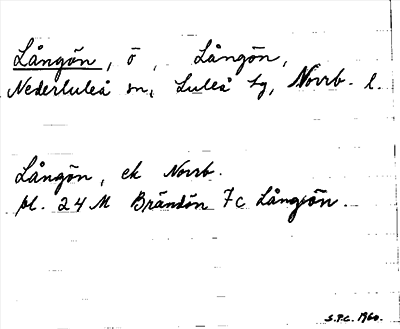 Långön, ö, Långön,
Nederluleå sn, Luleå tg, Norrb. l.
Långön, ek Norrb.
bl. 24 M Brändön 7c Långön.
S.P.C. 1960.